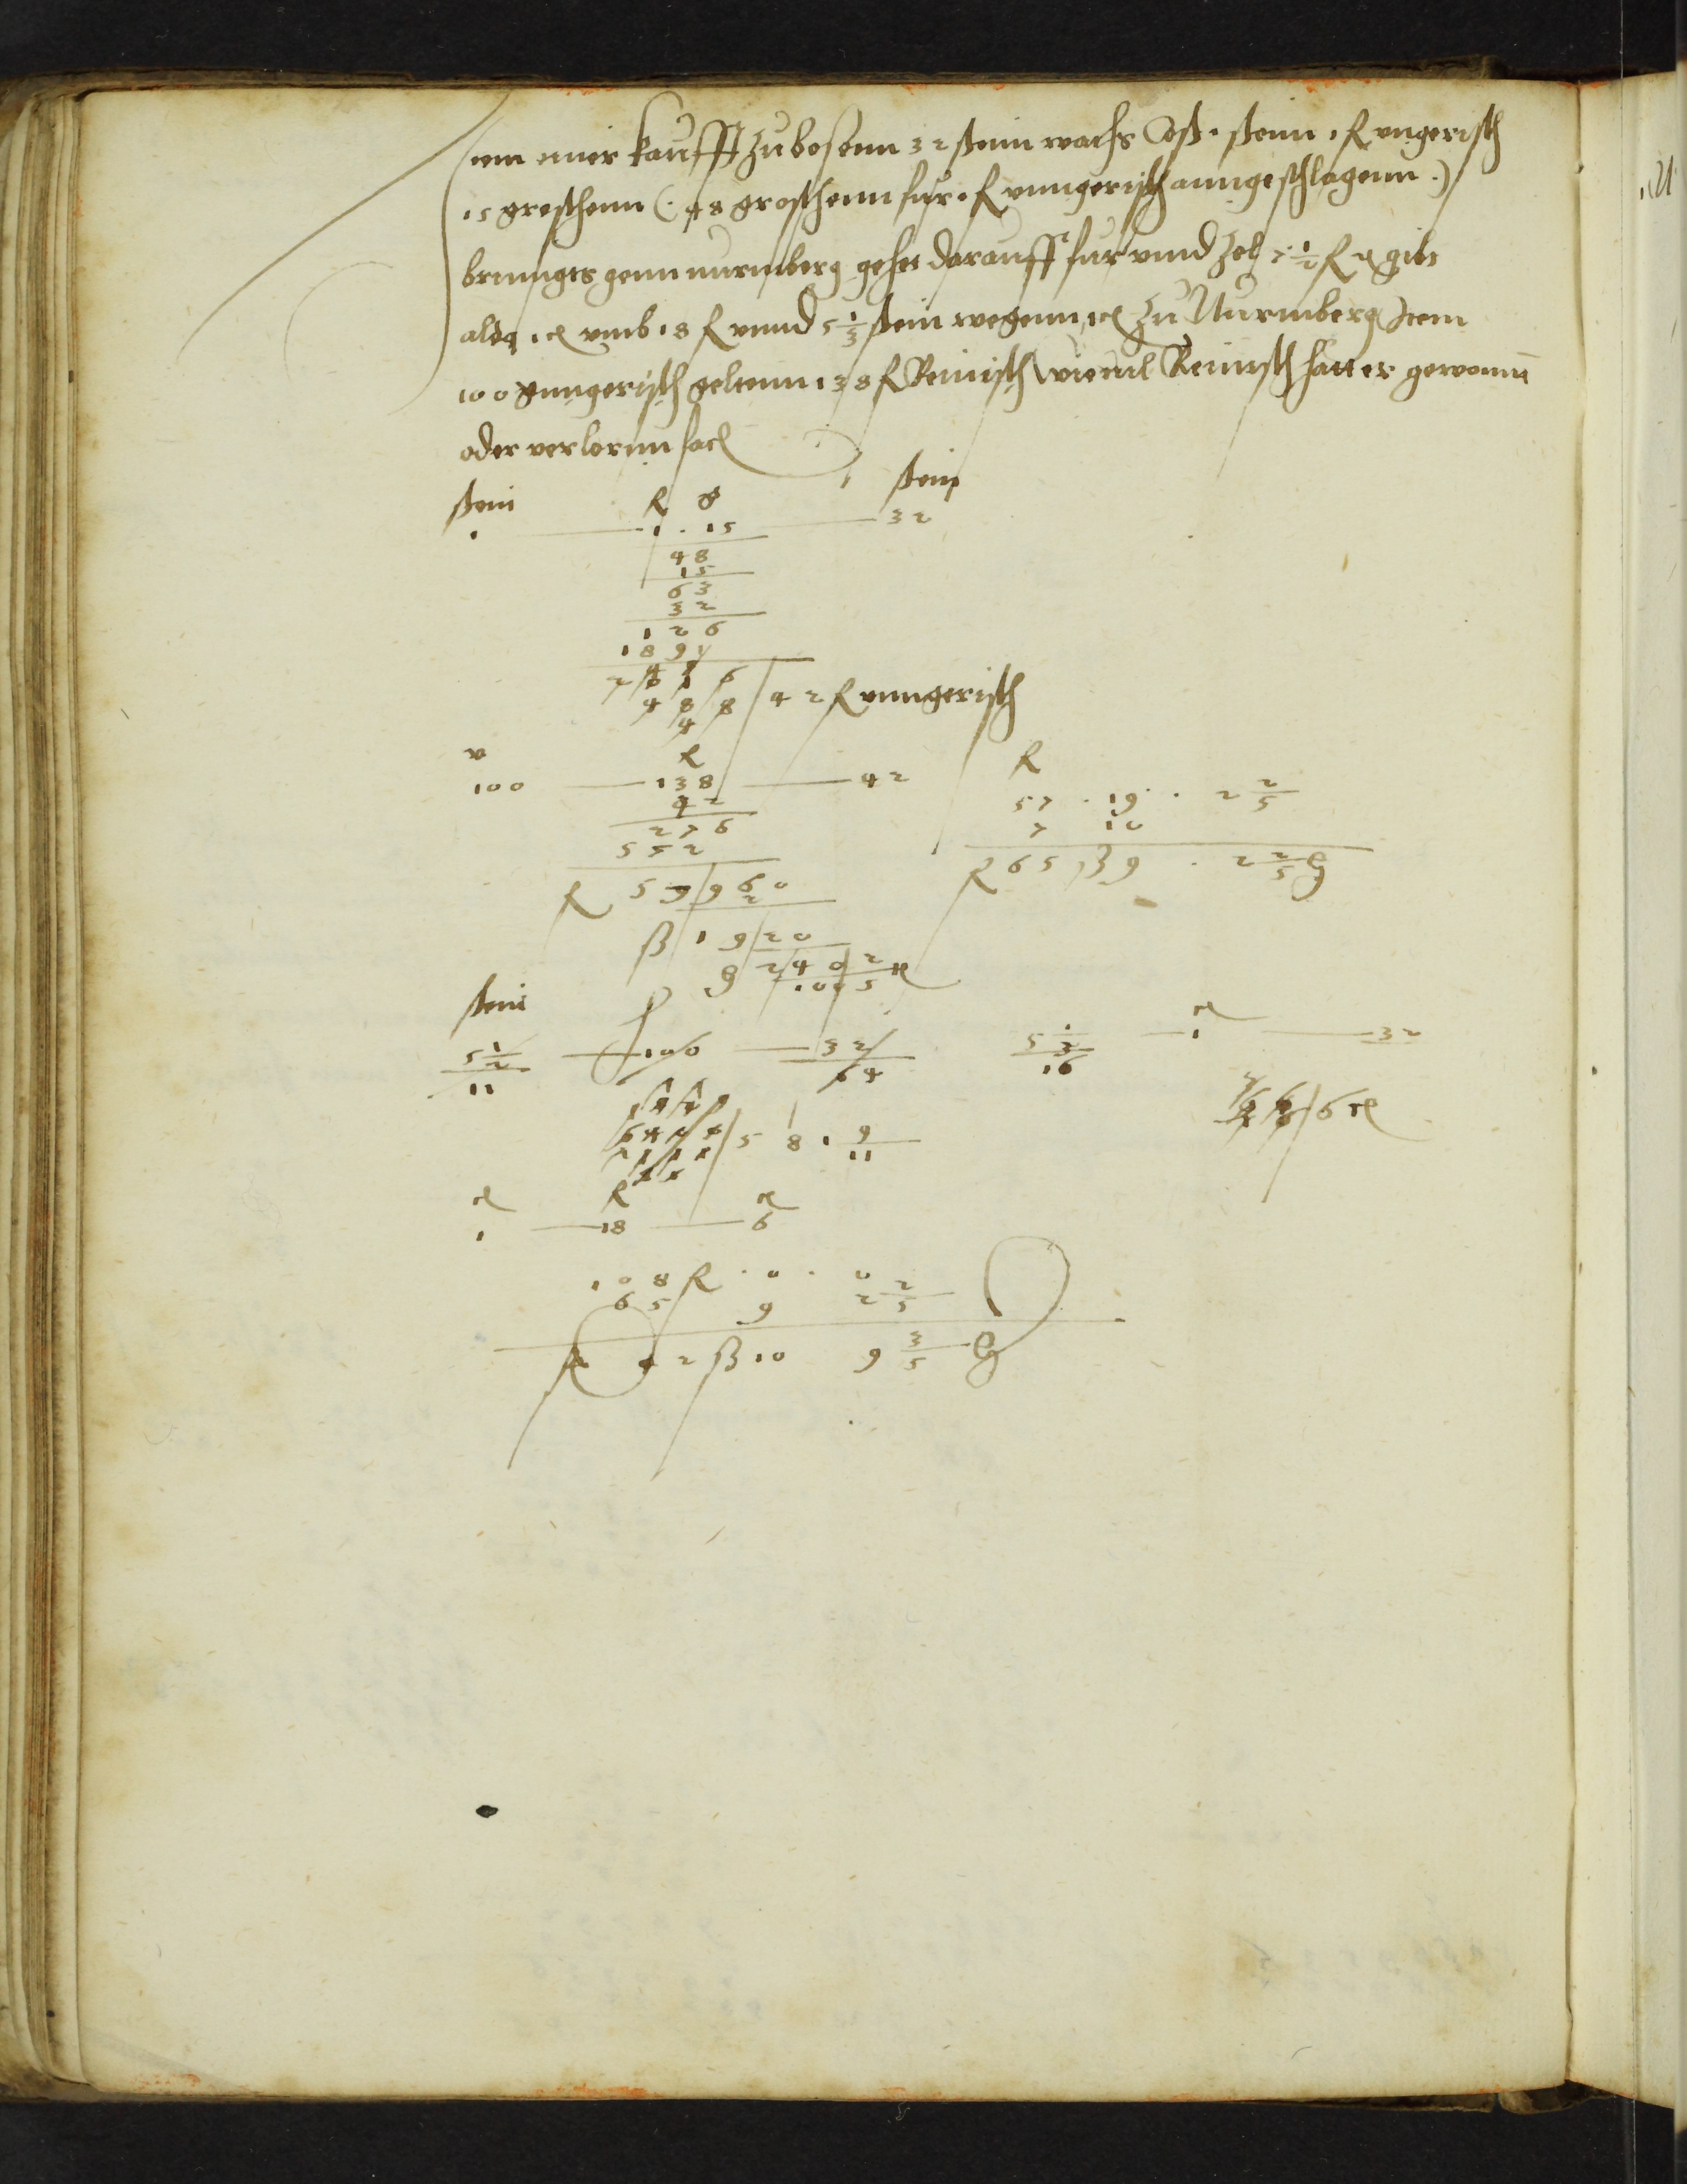 Item einer kaufft zu bosenn 32 stein wachs Cost 1 stenn 1 fl ungerisch
15 groschenn (. 48 groschenn fur 1 fl vnngerisch anngeschlagenn .)
brinngts genn nurmberg gehet darauff fur vnnd Zol 7 1/2 fl gibt
alda 1 vmb 18 fl vnnd 5 1/3 stein wegenn 1 Zu Nurmberg Item
100 vnngerisch geltenn 138 fl Reinisch wieuil Reinisch hatt er gewonnen
oder verlornn
stein fl g stein
1 — 1 . 15 — 32
48
15
63
32
126
189
2016 / 42 fl vnngerisch
488
4
v fl
100 — 138 — 42
42
276
552
fl 57 | 96 0
2
ß 19 | 20
2 | 40 | 2/5
100
fl
57 . 19 . 2 2/5
7 10
fl 65 ß 9 . 2 2/5
stein
5 1/2 — 100 — 32
11 64
/ 5 8 1 9/11
5 1/3 — 1 — 32
16
/ 6
fl
1 — 18 — 6
108 fl . 0 . 0
65 9 2 2/5
fl 42 ß 10 9 3/5